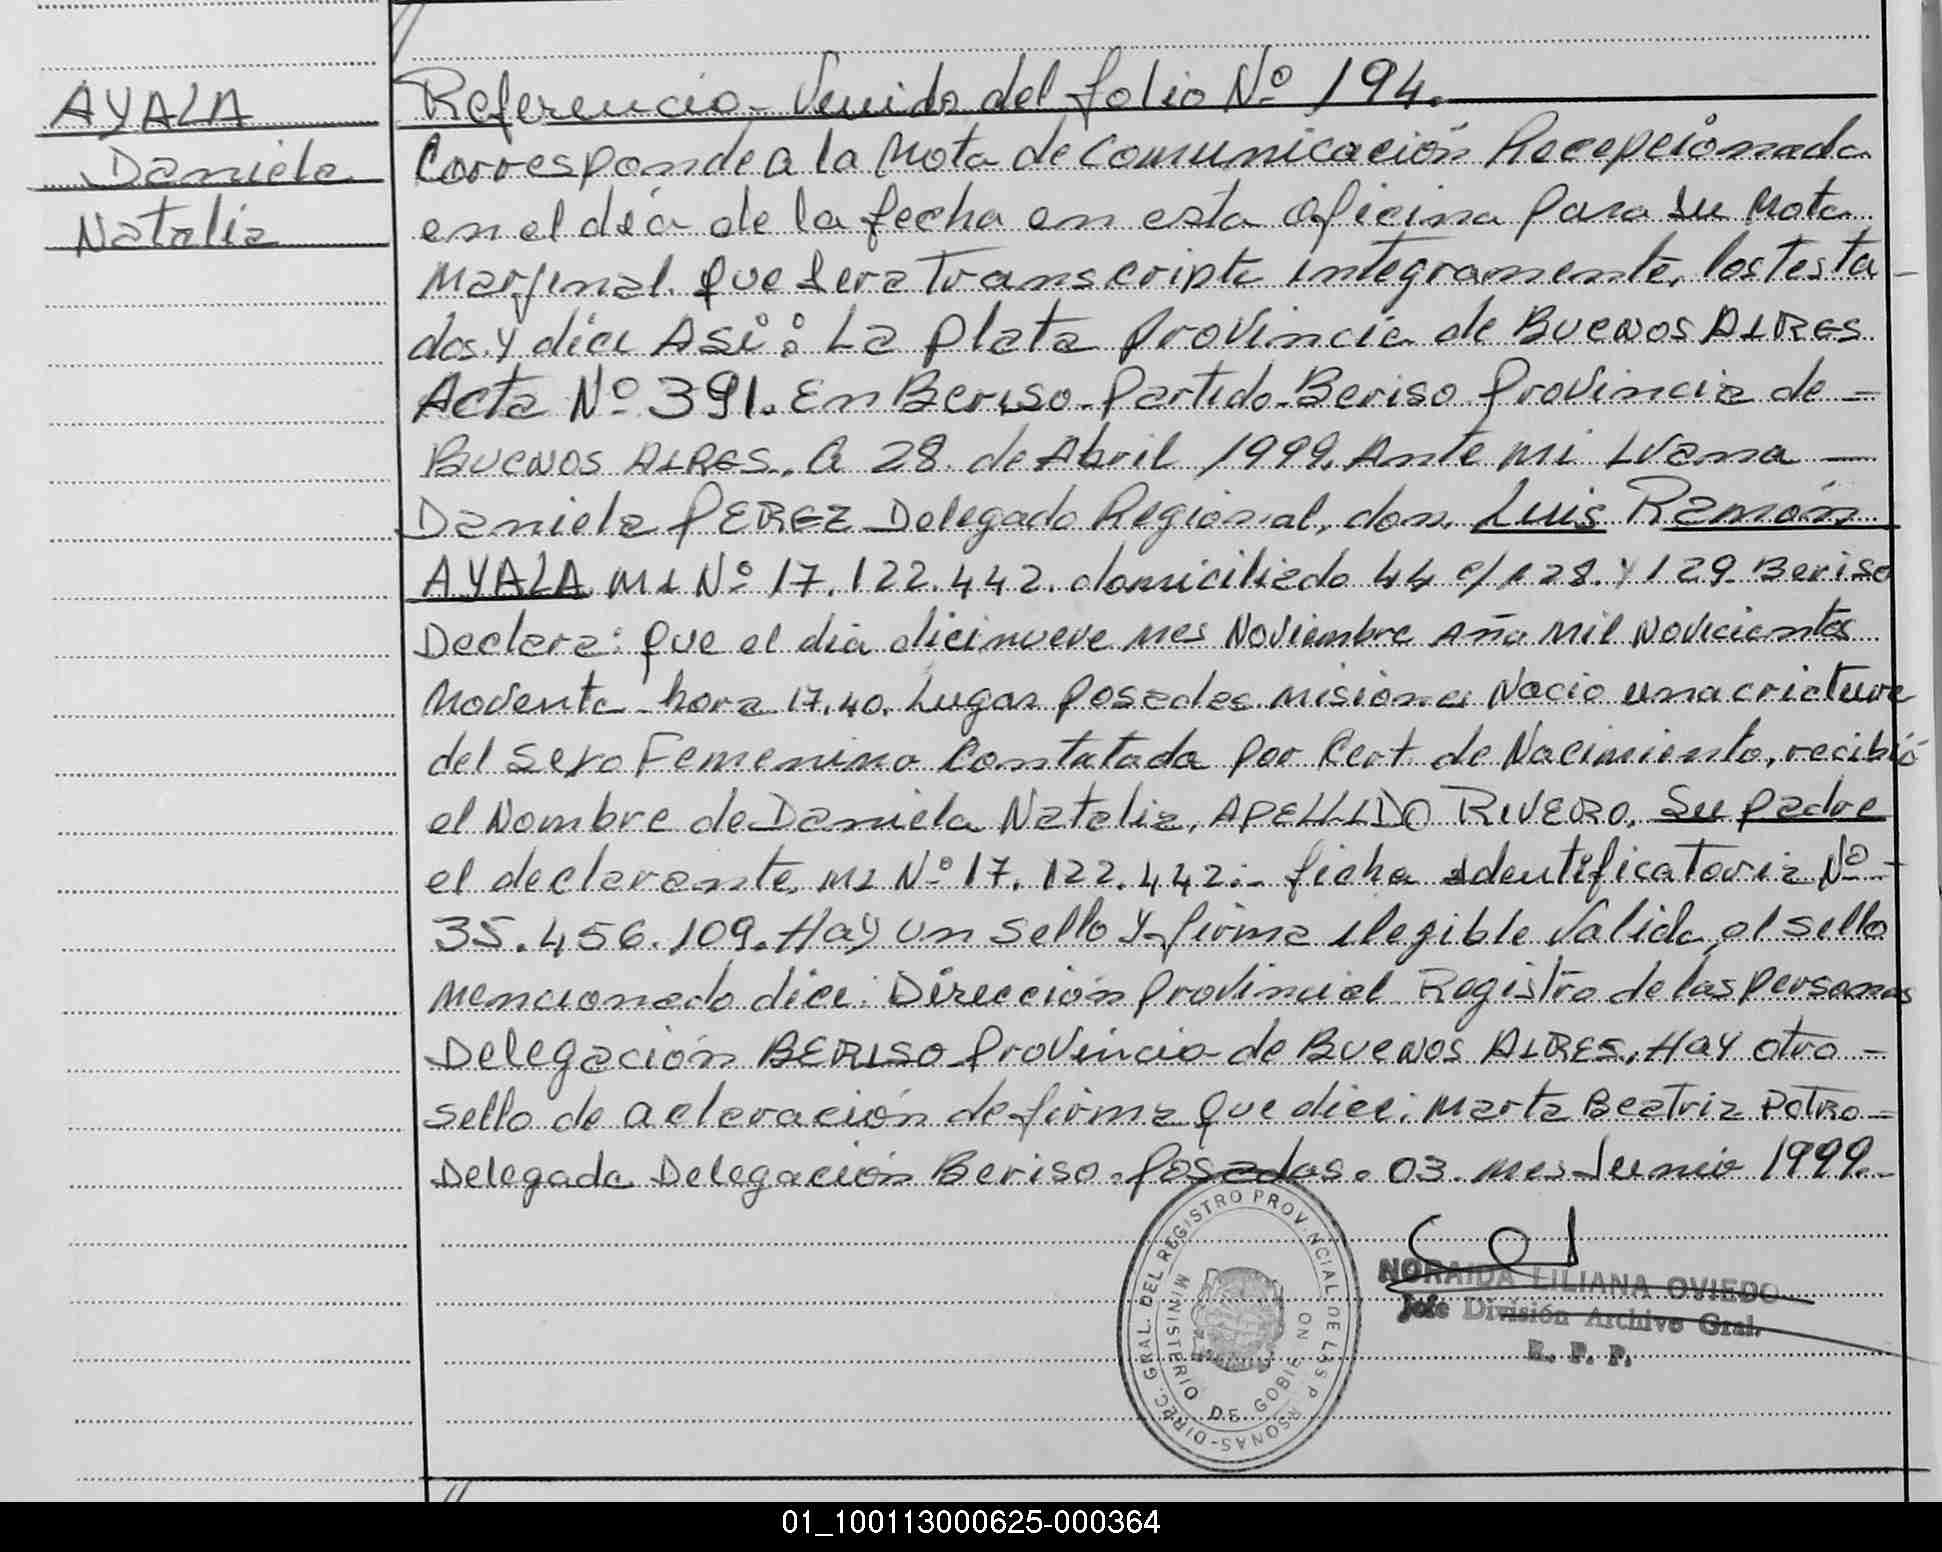 AYALA
Daniela
Natalia
Referencia - Venido del folio Nº 194.
Corresponde a la Nota de Comunicación Recepcionada
en el día de la fecha en esta oficina para su Nota
Marginal que sera transcripta integramente, los testa-
dos y dice Así: La Plata Provincia de BUENOS AIRES
Acta Nº 391. En Beriso - Partido - Beriso Provincia de -
BUENOS AIRES, a 28 de Abril 1999, Ante mi Ivana -
Daniela PEREZ Delegado Regional, don, Luis Ramón
AYALA MI Nº 17.122.442. domiciliado 44 e/ 128. y 129 Beriso
Declara: que el dia dicinueve mes Noviembre Año Mil Novicientos
Noventa - hora 17,40. Lugar Posadas Misiones Nacio una criatura
del sexo Femenino Contatada por Cert. de Nacimiento, recibió
el Nombre de Daniela Natalia, APELLIDO RIVERO. Su padre
el declarante, MI Nº 17.122.442.- ficha identificatoria Nº -
35.456.109. Hay un sello y firma ilegible Valida, el sello
mencionado dice: Dirección Provincial Registro de las personas
Delegación BERISO Provincia de BUENOS AIRES, HAY otro -
sello de aclaración de firma que dice: Marta Beatriz POTRO -
Delegada Delegación Beriso. Posadas. 03. mes Junio 1999.-
DIREC. GRAL. DEL REGISTRO PROVINCIAL DE LAS PERSONAS
MINISTERIO DE GOBIERNO
NORAIDA LILIANA OVIEDO
Jefe División Archivo Gral.
R. P. P.
01_100113000625-000364